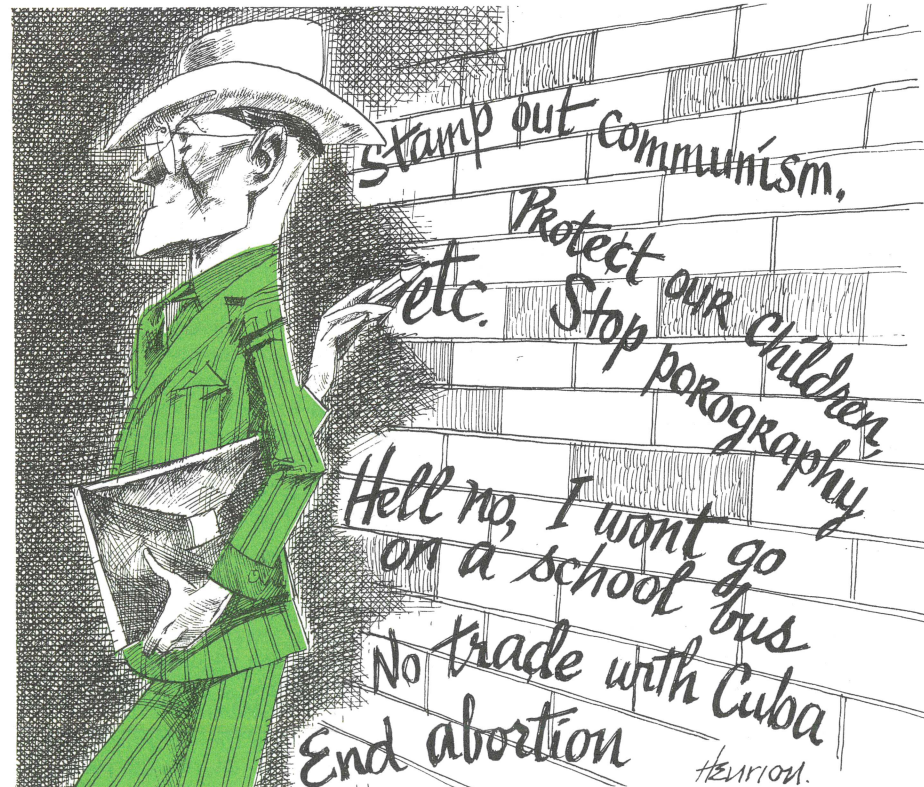 Stamp out communism.
Protect our children,
etc. Stop porography
Hell no, I wont go
on a school bus
No trade with Cuba
End abortion
Henrion.